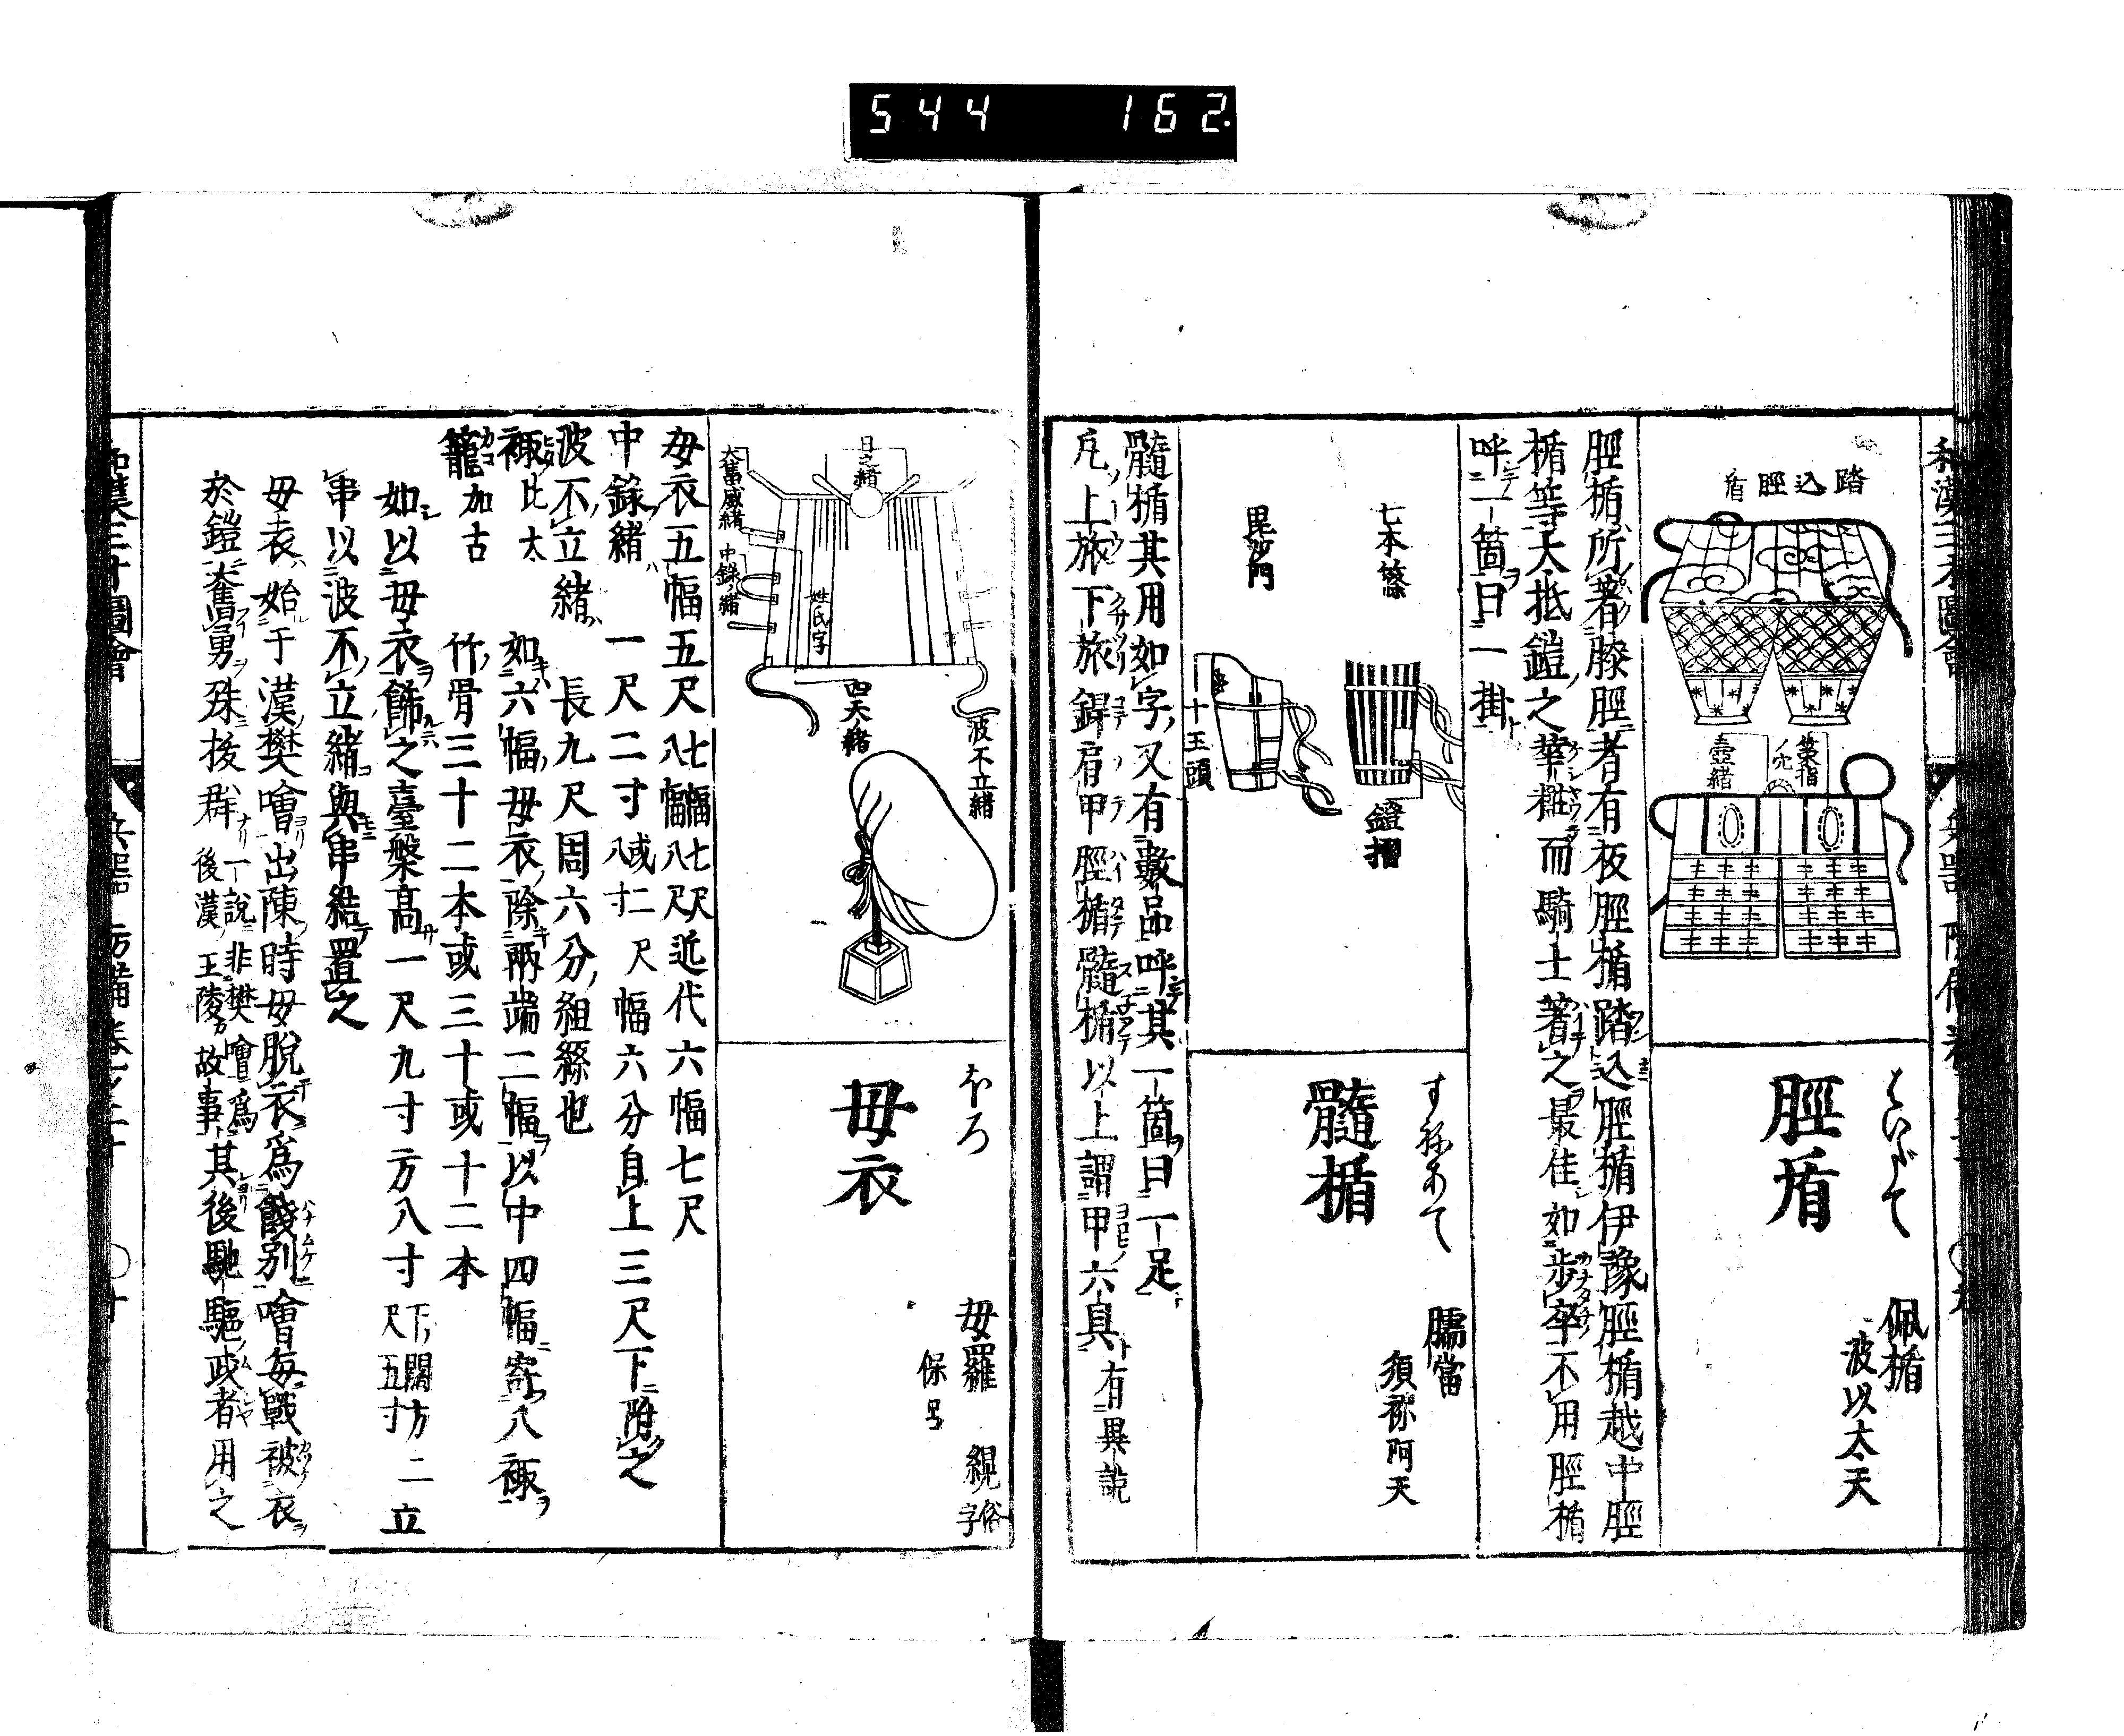 544 162
和漢三才圖會
踏込脛盾
菱指ノ穴
壺緒
はいだて
脛盾
佩楯
波以太天
脛楯所著膝脛者有板脛楯踏込脛楯伊豫脛楯越中脛
楯等大抵鎧之華粧而騎士著之最佳如歩卒不用脛楯
呼一箇曰一掛
七本篠
毘沙門
鐙摺
十王頭
すねあて
髓楯
臑當
須祢阿天
髓楯其用如字又有數品呼其一箇曰一足
凡上旅下旅銲肩甲脛楯髓楯以上謂甲六具有異説
日之緒
大奮威緒
中錄ノ緒
姓氏字
四天ノ緒
波不立緒
ほろ
母衣
母羅
保呂
縨俗字
母衣五幅五尺七幅七尺八幅八尺近代六幅七尺
中錄緒一尺二寸或二尺八寸幅六分自上三尺下附之
波不立緒長九尺周六分組縧也
襵比太如六幅母衣除兩端二幅以中四幅寄八襵
籠加古竹骨三十二本或三十或十二本
如以母衣餙之臺槃高一尺九寸方八寸下濶方二尺五寸立
串以波不立緒與串結置之
母衣始于漢樊噲出陳時母脱衣爲餞別噲毎戰被衣
於鎧奮勇殊拔群一説非樊噲爲後漢王陵故事其後馳驅武者用之
和漢三才圖會